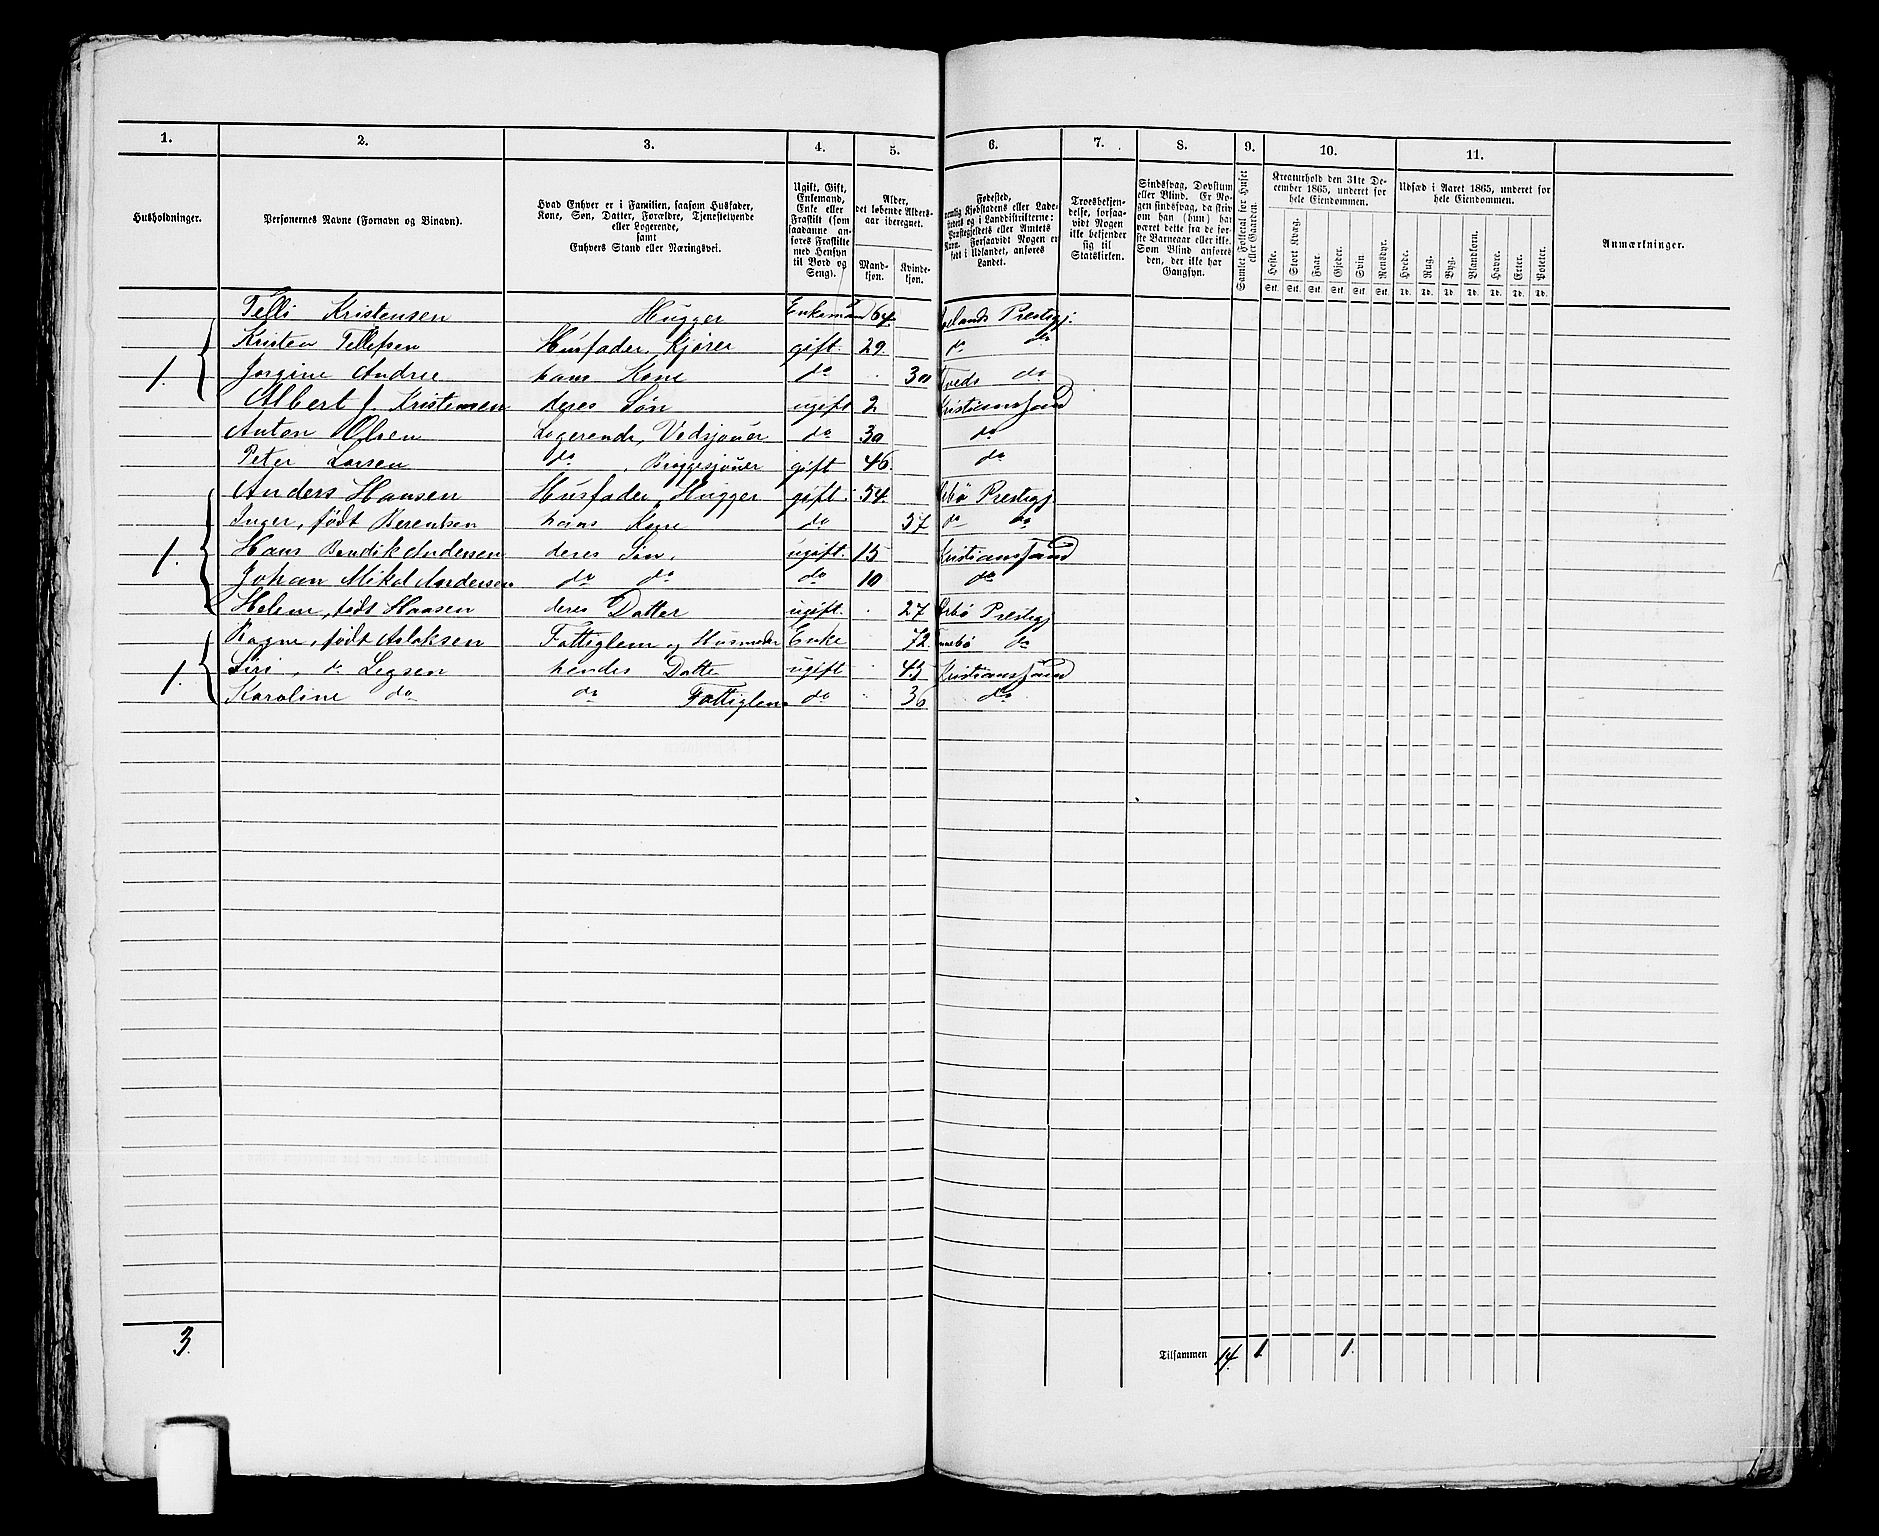 1. 2. 3. 4. 5. 6. 7. 8. 9. 10. 11.
Husholdninger.
Personernes Navne (Fornavn og Binavn).
Hvad Enhver er i Familien, saasom Husfader,
Kone, Søn, Datter, Forældre, Tjenestetyende
eller Logerende,
samt
Enhvers Stand eller Næringsvei.
Ugift, Gift,
Enkemand,
Enke eller
Fraskilt (som
saadanne an-
føres Fraskilte
med Hensyn
til Bord og
Seng).
Alder,
det løbende Alders-
aar iberegnet.
Mand-
kjøn.
Kvinde-
kjøn.
Fødested,
nemlig Kjøbstadens eller Lade-
stedets og i Landdistrikterne:
Præstegjeldets eller Amtets
Navn. Forsaavidt Nogen er
født i Udlandet, anføres
Landet.
Troesbekjen-
delse, forsaa-
vidt Nogen
ikke bekjender
sig til
Statskirken.
Sindssvag, Døvstum
eller Blind. Er No-
gen sindssvag, da skriv
om han (hun) har
været dette fra de før-
ste Barneaar eller ikke.
Som Blind anføres
den, der ikke har
Gangsyn.
Samlet Folketal for Huset
eller Gaarden.
Kreaturhold den 31te De-
cember 1865, underet for
hele Eiendommen.
Heste. Stort Kvæg. Faar. Gjeder. Svin. Rensdyr.
Stk. Stk. Stk. Stk. Stk. Stk.
Udsæd i Aaret 1865, underet for
hele Eiendommen.
Hvede. Rug. Byg. Blandkorn. Havre. Erter. Poteter.
Td. Td. Td. Td. Td. Td. Td.
Anmærkninger.
Telli Kristensen Hugger Enkemand 64. Prestigj.
Kristen Tellefsen Husfader, Kjører gift. 29. do do
1. Jorgine Andrec hans Kone do 30 Tveds do
Albert J. Kristensen deres Søn ugift 2 Kristianssand
Anton Olsen Logerende, Vedsjouer do 30 do
Peter Larsen do, Bryggesjouer gift 46 do
Anders Hansen Husfader, Hugger gift. 54. Prestigj.
Inger, født Berentsen hans Kone do 57 do do
1. Hans Bendik Andersen deres Søn. ugift. 15 Kristianssand
Johan Mikal Andersen do do do 10 do
Helene, født Hansen deres Datter ugift. 27 Prestigj
Ragne, født Aslaksen Fattiglem og Husmoder Enke 72. do
1. Siri, do Legsen hendes Datte ugift 43 Kristianssand
Karoline do do Fattiglem do 36 do
3. Tilsammen 14. 1. 1.